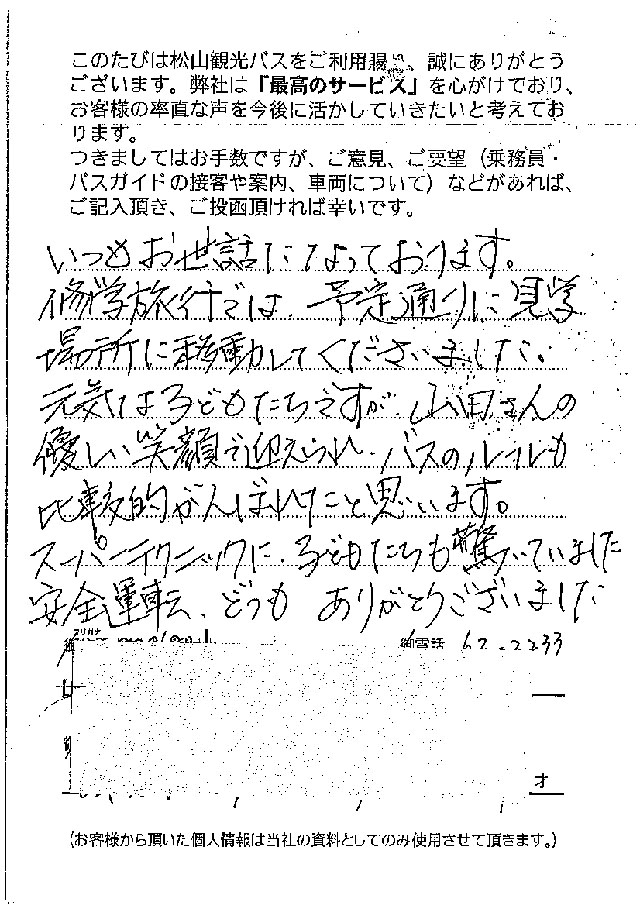 このたびは松山観光バスをご利用賜り、誠にありがとう
ございます。弊社は「最高のサービス」を心がけており、
お客様の率直な声を今後に活かしていきたいと考えてお
ります。
つきましてはお手数ですが、ご意見、ご要望(乗務員・
バスガイドの接客や案内、車両について)などがあれば、
ご記入頂き、ご投函頂ければ幸いです。
いつもお世話になっております。
修学旅行では、予定通りに見学
場所に移動してくださいました。
元気な子どもたちですが、山田さんの
優しい笑顔で迎えられ、バスのルールも
比較的がんばれたと思います。
スーパーテクニックに、子どもたちも驚いていました
安全運転、どうも ありがとうございました
フリガナ
御電話 62-2233
才
(お客様から頂いた個人情報は当社の資料としてのみ使用させて頂きます。)